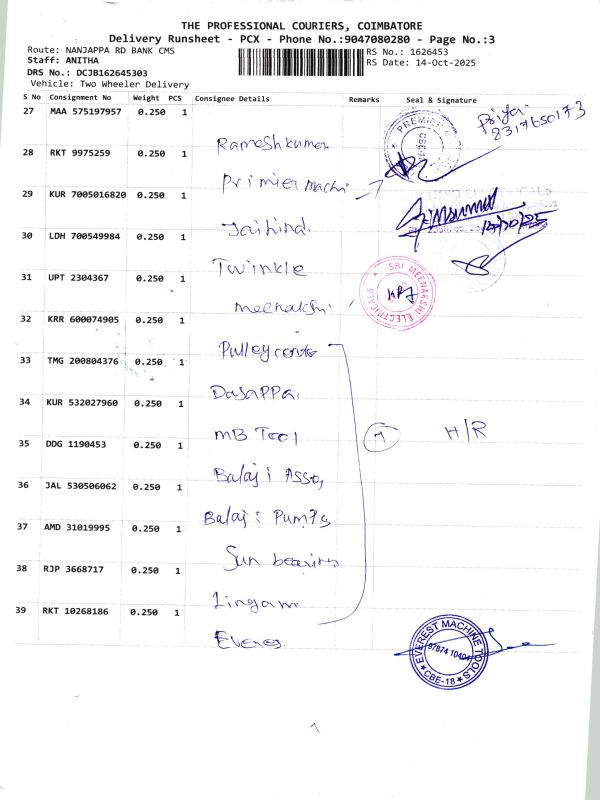 THE PROFESSIONAL COURIERS, COIMBATORE
Delivery Runsheet - PCX - Phone No.:9047080280 - Page No.:3
Route: NANJAPPA RD BANK CMS
RS No.: 1626453
Staff: ANITHA
RS Date: 14-Oct-2025
DRS No.: DCJB162645303
Vehicle: Two Wheeler Delivery
S No Consignment No Weight PCS Consignee Details Remarks Seal & Signature
27 MAA 575197957 0.250 1 Rameshkumar
Priya
8317650173
PREMIER
28 RKT 9975259 0.250 1 Primier machi
29 KUR 7005016820 0.250 1 Jaihind
30 LDH 700549984 0.250 1 Twinkle
31 UPT 2304367 0.250 1 meenakshi
SRI MEENAKSHI ELECTRICALS
32 KRR 600074905 0.250 1 Pulley
33 TMG 200804376 0.250 1 Dasappa
34 KUR 532027960 0.250 1 MB Tool
7 H/R
35 DDG 1190453 0.250 1 Balaji Asso,
36 JAL 530506062 0.250 1 Balaji Pumps
37 AMD 31019995 0.250 1 Sun bearing
38 RJP 3668717 0.250 1 Lingam
39 RKT 10268186 0.250 1 Everes
EVEREST MACHINE TOOLS
97874 10404
CBE-18